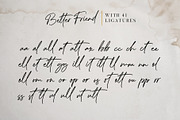 Better Friend
WITH 41
LIGATURES
an al all at att ax bb cc ch ct ee
ell et ett gg ill it itt ll mm an nl
oll om on or os ot ott ox pp rr
ss st tt ul all ut utt